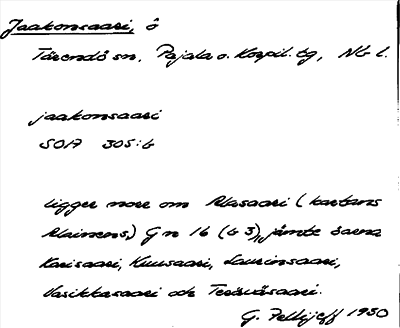 Jaakonsaari, ö
Tärendö sn, Pajala o. Korpil. tg, Nb l.
jaakonsaari
SOA7 305:6
ligger norr om Alasaari (kartans
) G n 16 (G 3), jämte öarna
Karisaari, Kuusaari, Laurinsaari,
Vasikkasaari och Terävä saari.
G. Pellijeff 1950